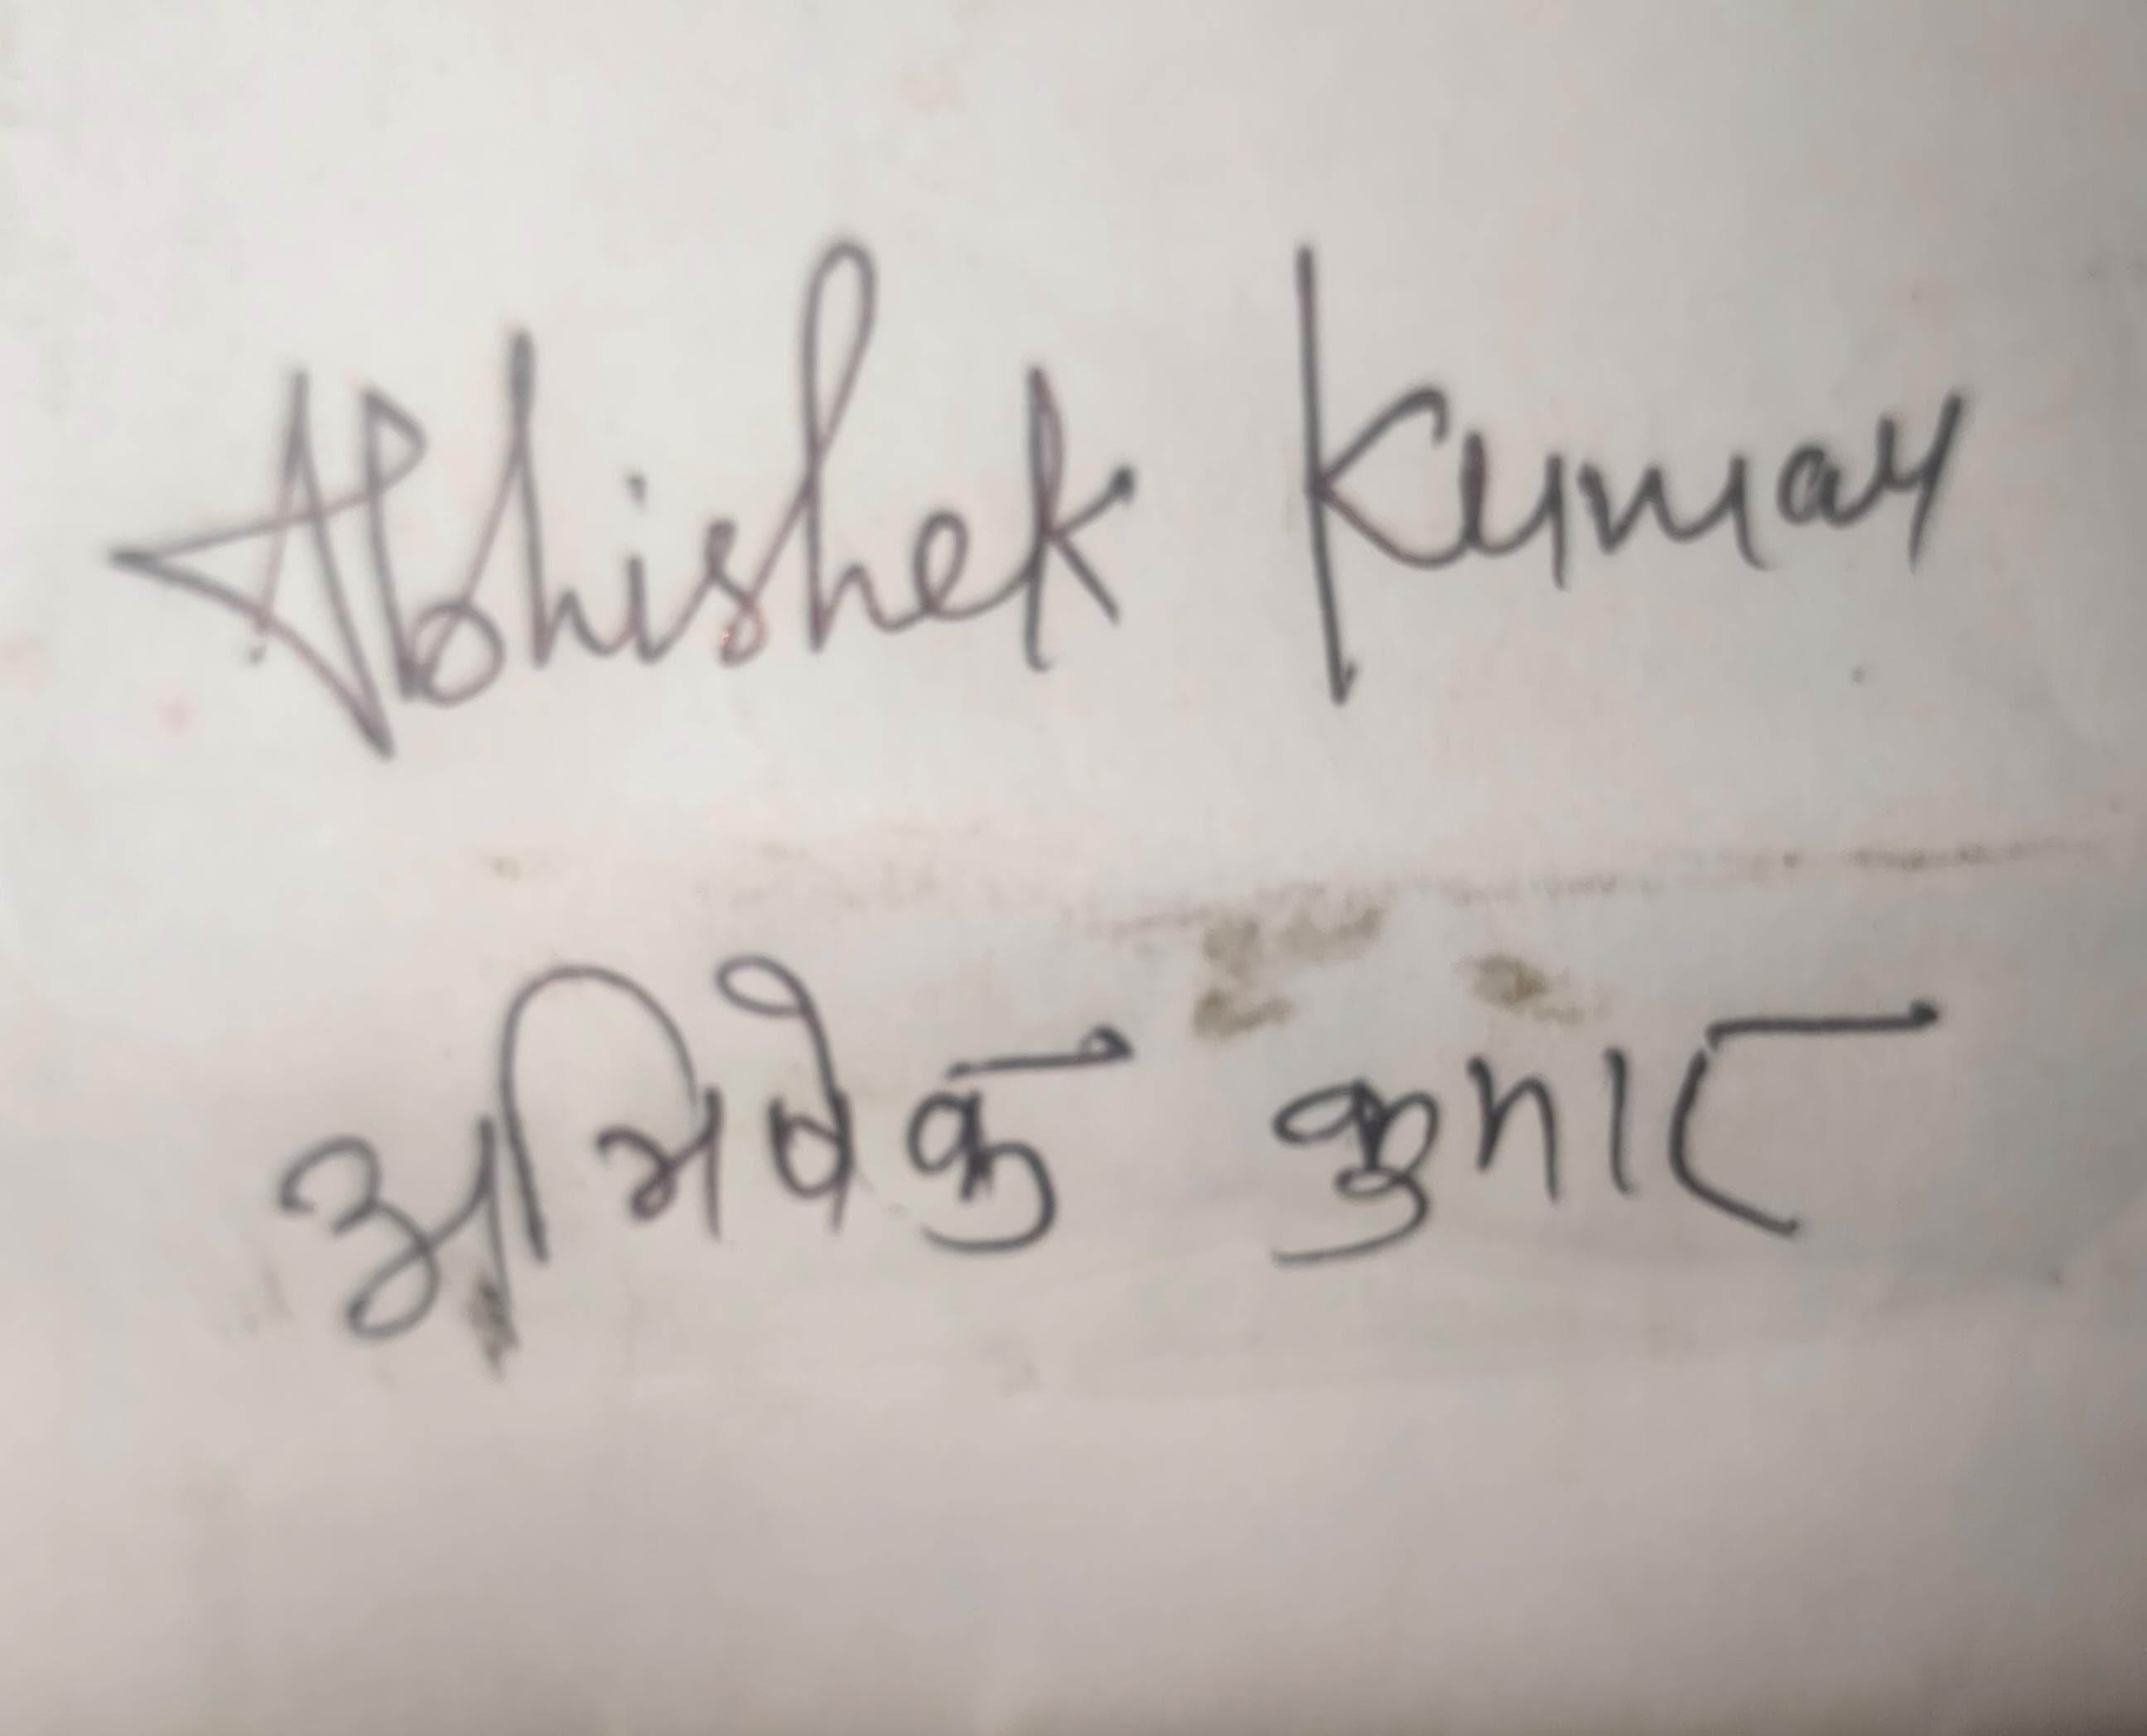 Abhishek Kumar
अभिषेक कुमार